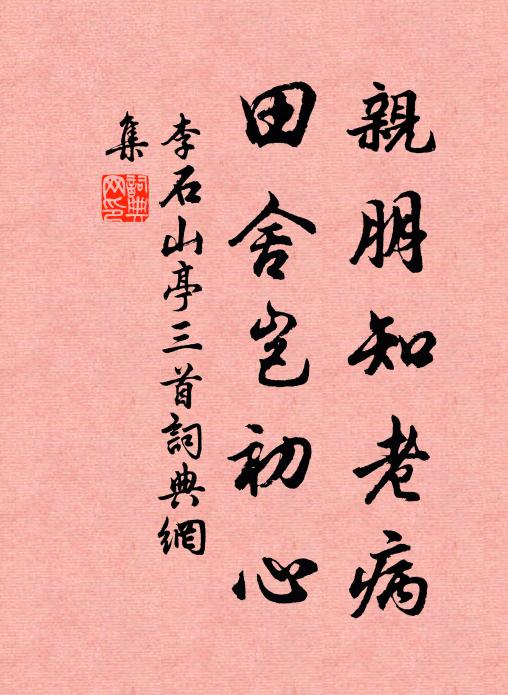 親朋知老病
田舍豈初心
李石山亭三首詞典網
集
詞典
网印